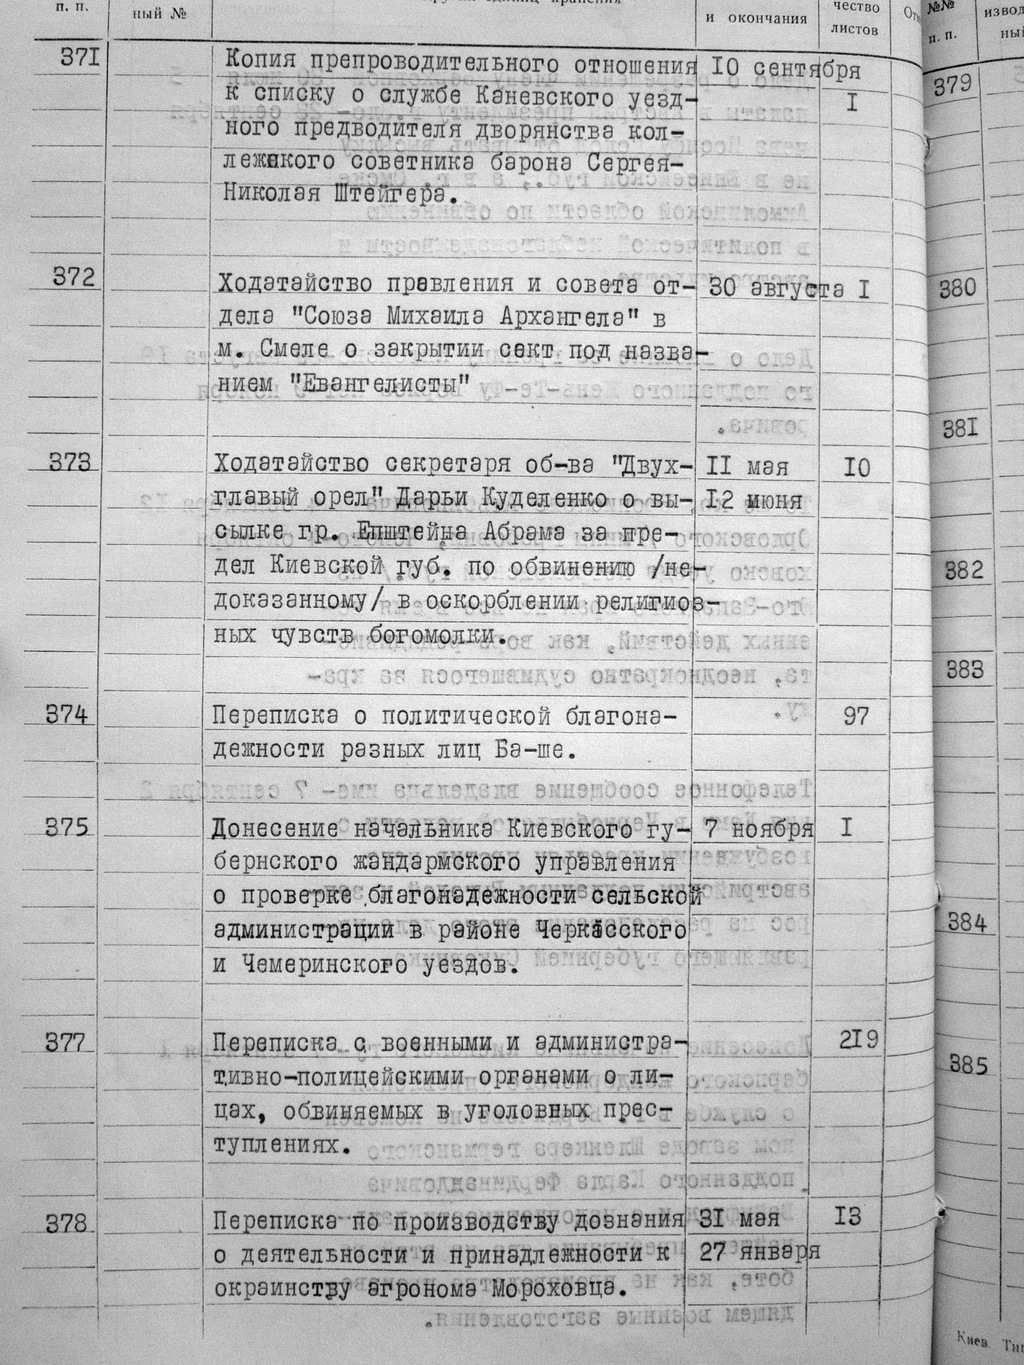 п. п.
ный №
и окончания
чество
листов
№№
п. п.
371 Копия препроводительного отношения 10 сентября
к списку о службе Каневского уезд- I
ного предводителя дворянства кол-
лежского советника барона Сергея-
Николая Штейгера.
372 Ходатайство правления и совета от- 30 августа I
дела "Союза Михаила Архангела" в
м. Смеле о закрытии сект под назва-
нием "Евангелисты"
373 Ходатайство секретаря об-ва "Двух- II мая 10
главый орел" Дарьи Куделенко о вы- 12 июня
сылке гр. Епштейна Абрама за пре-
дел Киевской губ. по обвинению /не-
доказанному/ в оскорблении религиоз-
ных чувств богомолки.
374 Переписка о политической благона- 97
дежности разных лиц Ба-ше.
375 Донесение начальника Киевского гу- 7 ноября I
бернского жандармского управления
о проверке благонадежности сельской
администрации в районе Черкасского
и Чемеринского уездов.
377 Переписка с военными и администра- 219
тивно-полицейскими органами о ли-
цах, обвиняемых в уголовных прес-
туплениях.
378 Переписка по производству дознания 31 мая 13
о деятельности и принадлежности к 27 января
окраинству агронома Мороховца.
379
380
381
382
383
384
385
Киев.